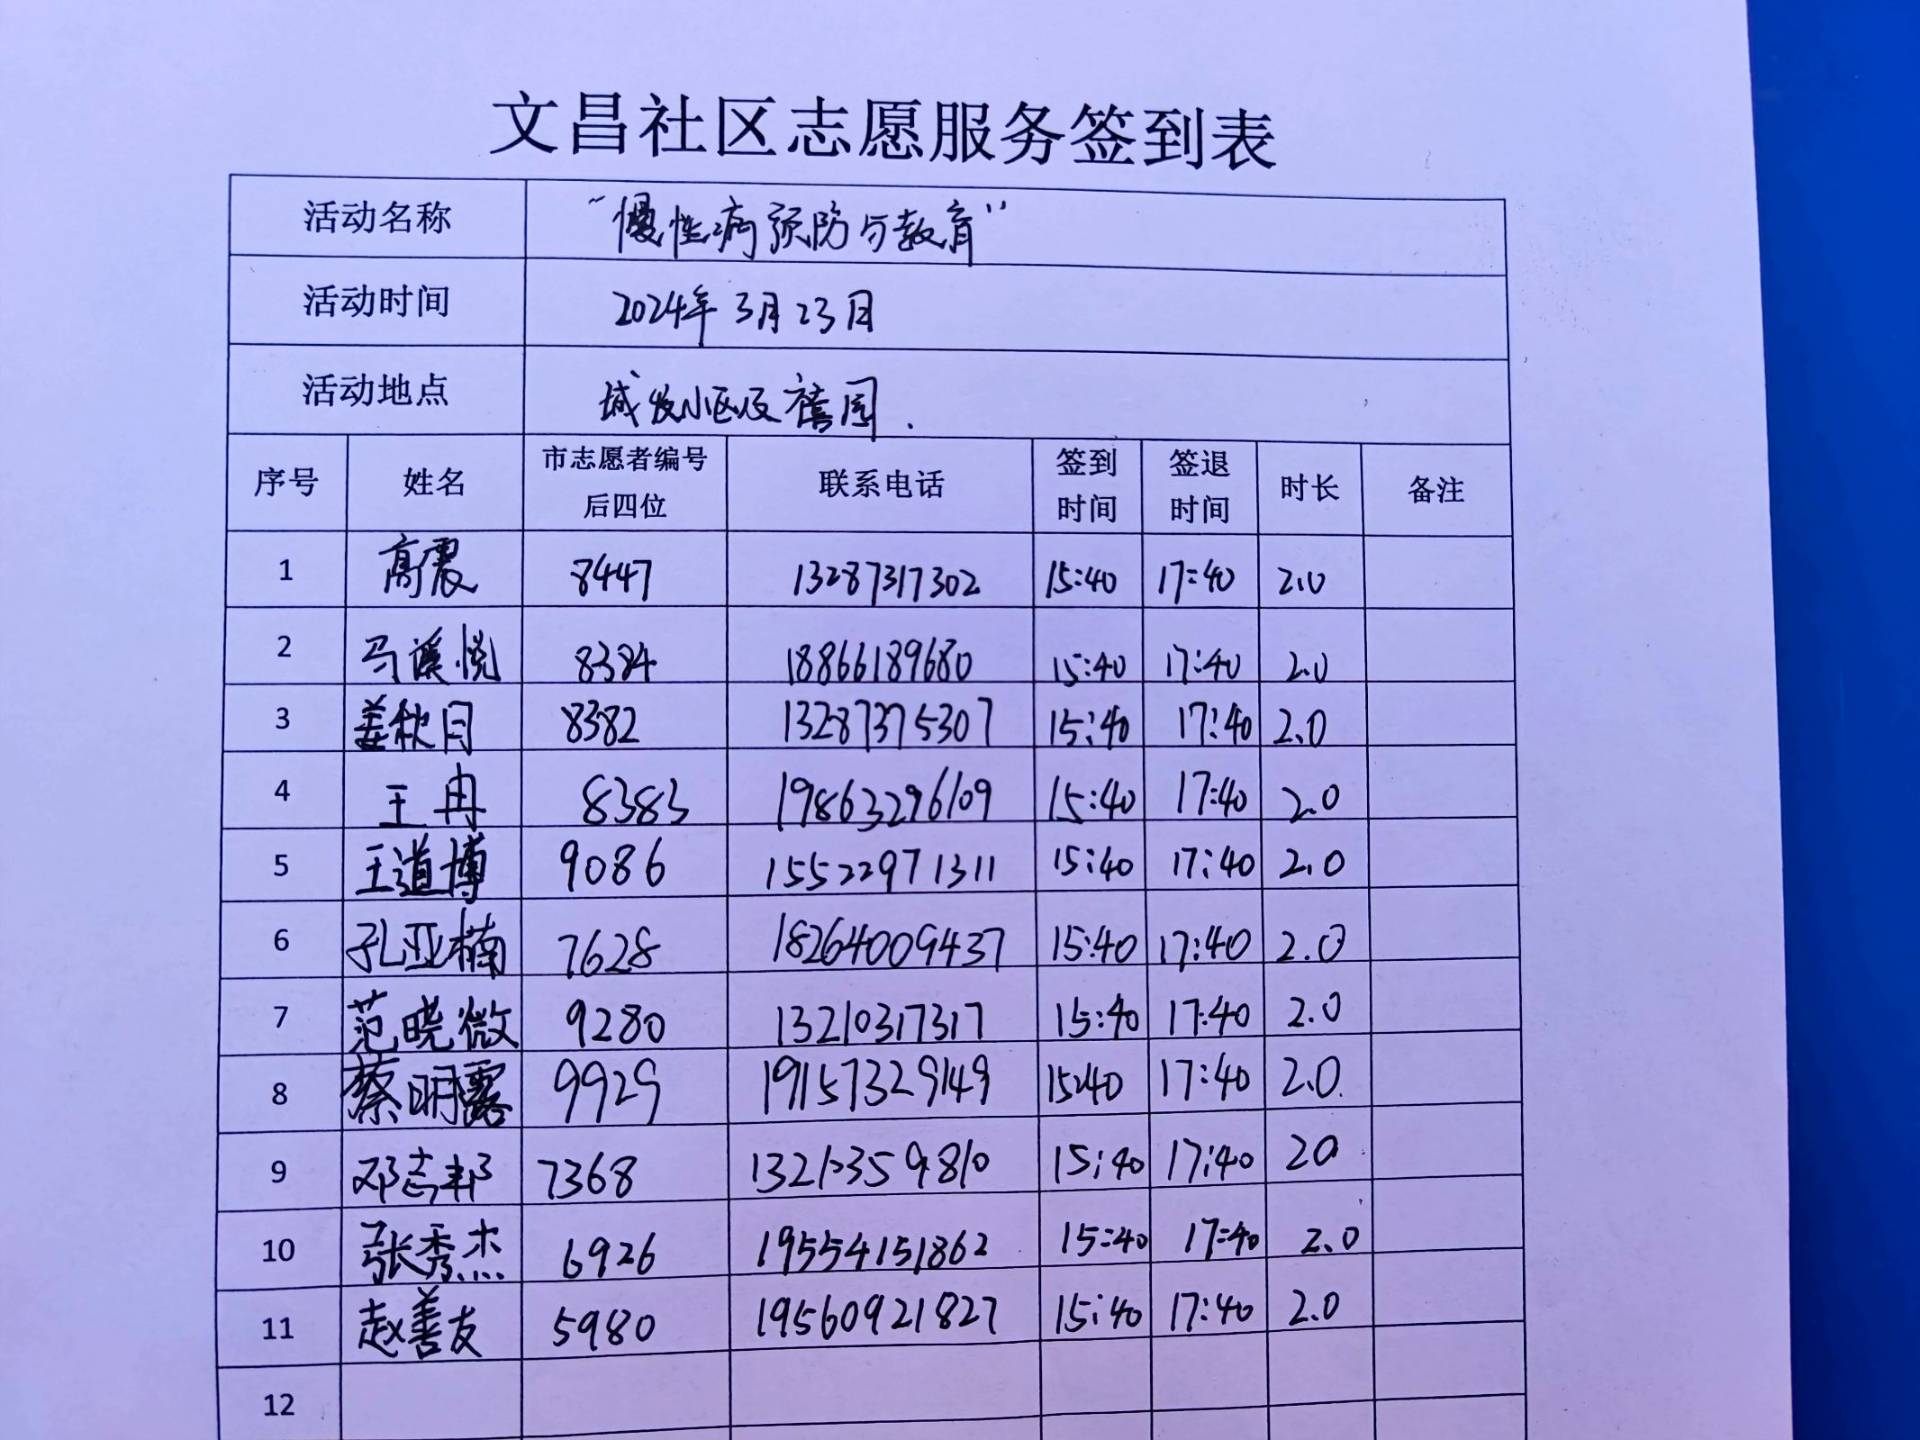 文昌社区志愿服务签到表
活动名称 “慢性病预防与教育”
活动时间 2024年3月23日
活动地点 城发小区及禧园.
序号 姓名 市志愿者编号后四位 联系电话 签到时间 签退时间 时长 备注
1 高震 8447 13287317302 15:40 17:40 2.0
2 马溪悦 8384 18866189680 15:40 17:40 2.0
3 姜秋月 8382 13287375307 15:40 17:40 2.0
4 王冉 8383 19863296109 15:40 17:40 2.0
5 王道博 9086 15522971311 15:40 17:40 2.0
6 孔亚楠 7628 18264009437 15:40 17:40 2.0
7 范晓微 9280 13210317317 15:40 17:40 2.0
8 蔡明露 9929 19157329149 15:40 17:40 2.0
9 邓志邦 7368 15:40 17:40 2.0
10 张秀杰 6926 19554151862 15:40 17:40 2.0
11 赵善友 5980 19560921827 15:40 17:40 2.0
12